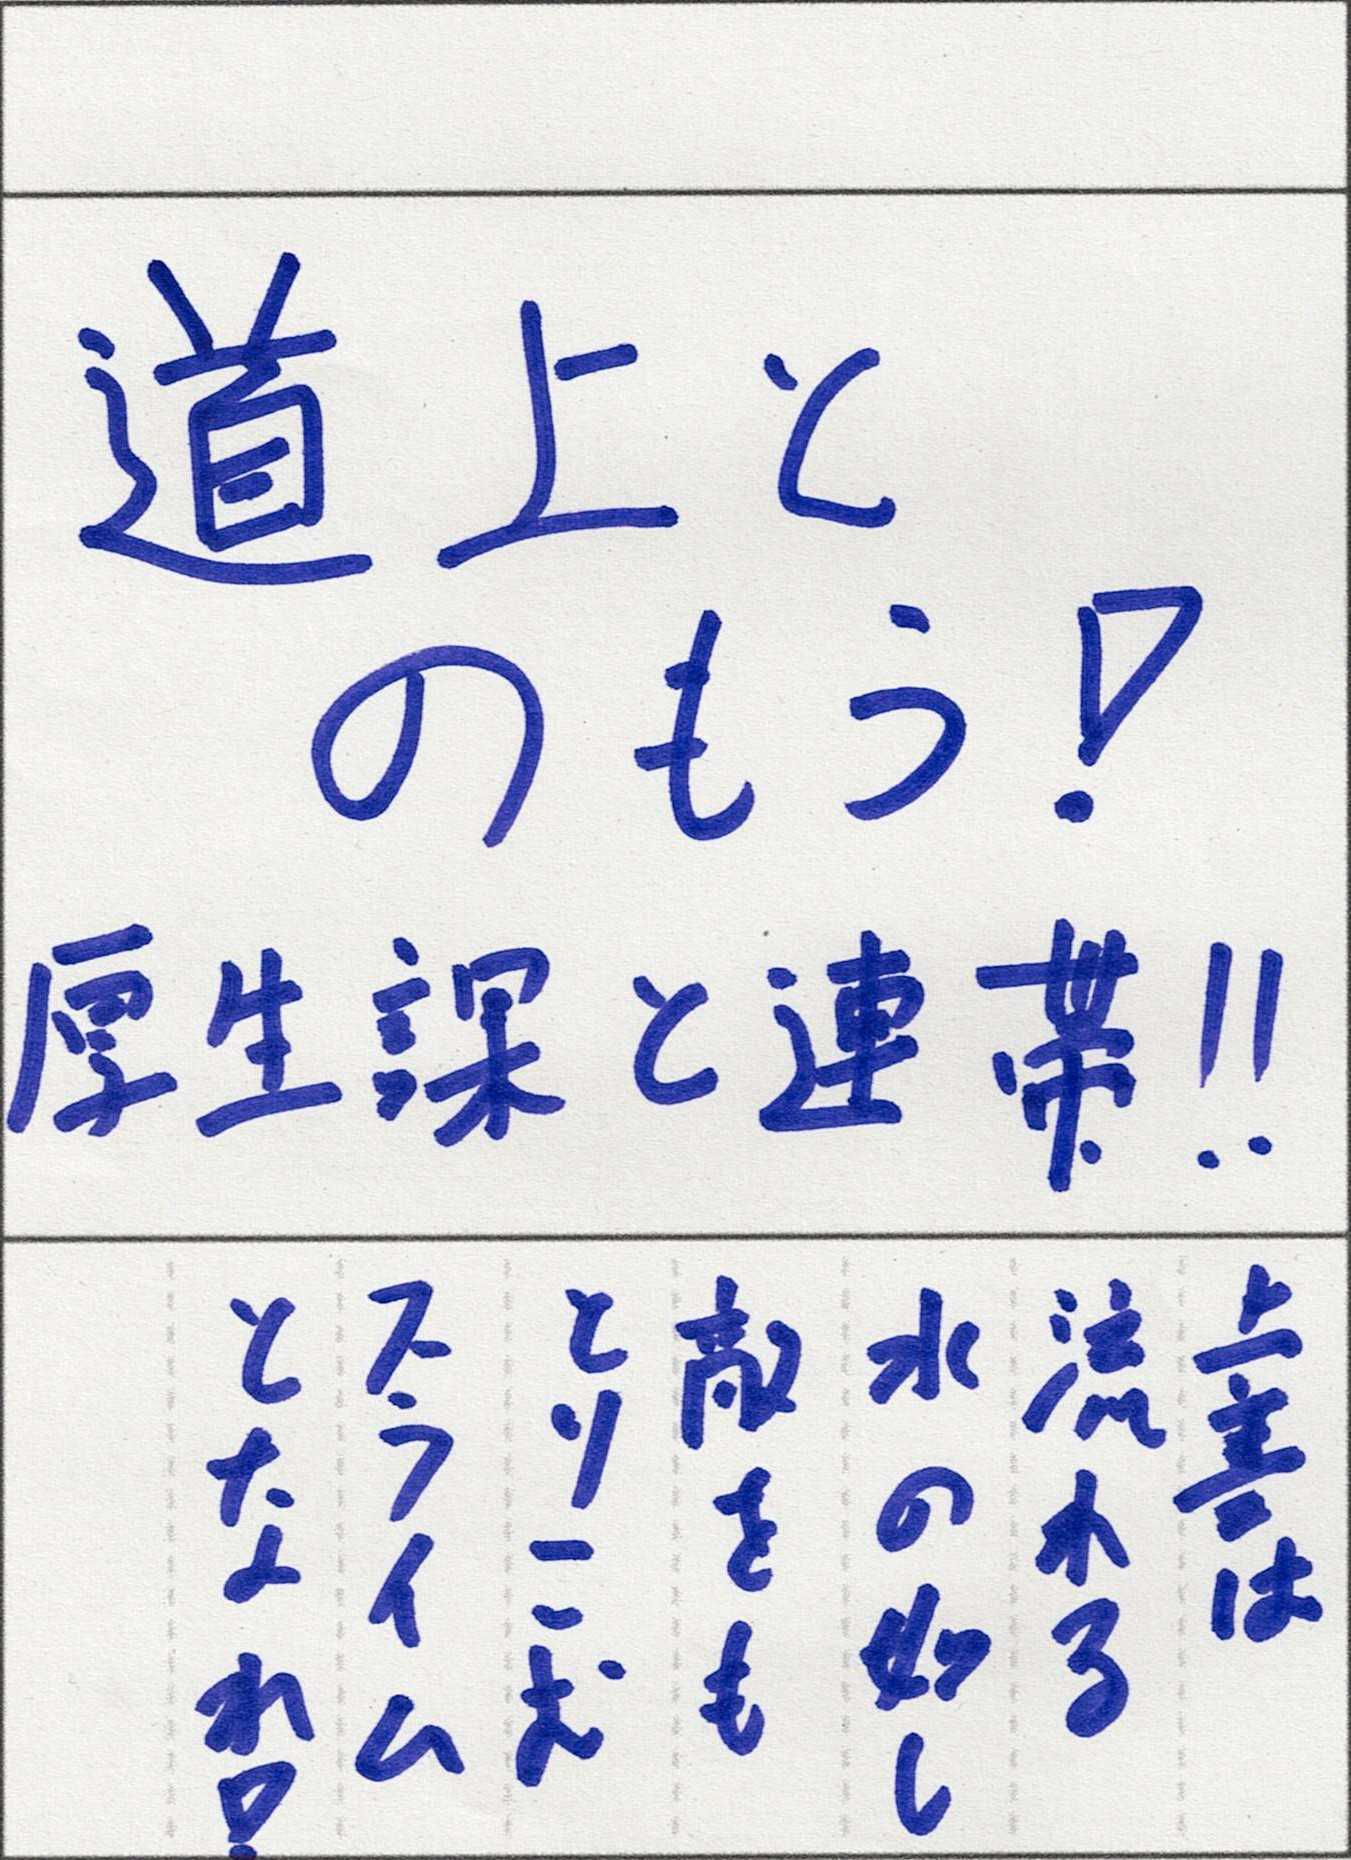 道上と
のもう!
厚生課と連帯!!
上善は
流れる
水の如し
敵をも
とりこむ
スライム
となれ!